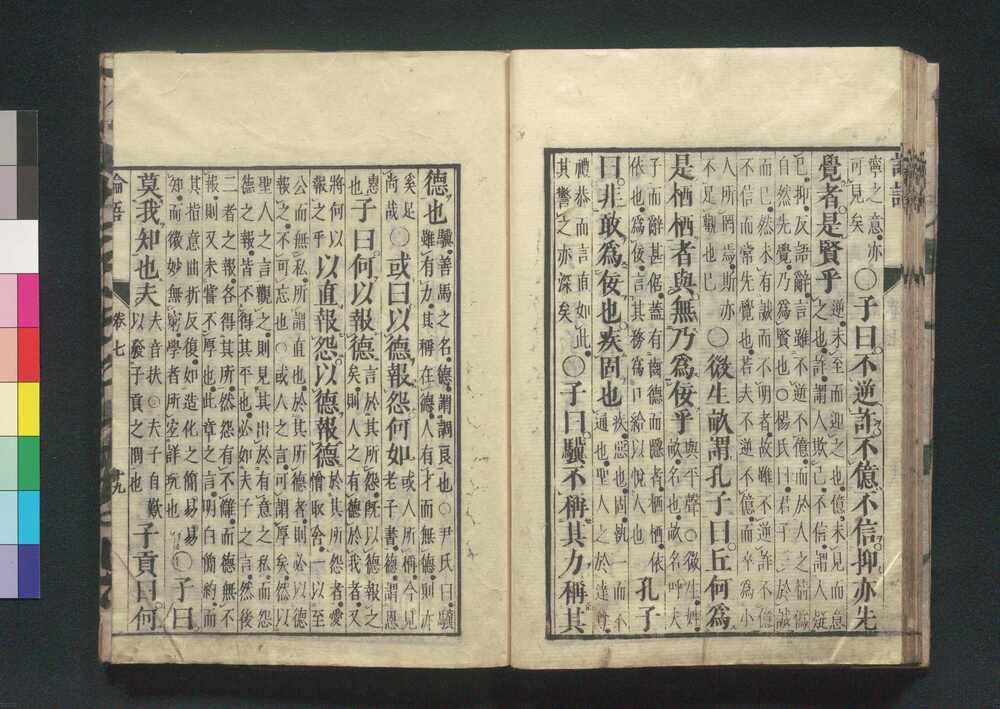 論語
甯之意亦
可見矣
○子曰不逆詐不億不信抑亦先
覺者是賢乎
逆未至而迎之也億未見而意
之也詐謂人欺己不信謂人疑
己抑反語辭言雖不逆不億而於人之情偽
自然先覺乃爲賢也○楊氏曰君子一於誠
而已然未有誠而不明者故雖不逆詐不億
不信而常先覺也若夫不逆不億而卒爲小
人所罔焉斯亦
不足觀也已
○微生畝謂孔子曰丘何爲
是栖栖者與無乃爲佞乎
與平聲○微生姓
畝名也畝名呼夫
子而辭甚倨蓋有齒德而隱者栖栖依
依也爲佞言其務爲口給以悅人也
孔子
曰非敢爲佞也疾固也
疾惡也固執一而不
通也聖人之於達尊
禮恭而言直如此
其警之亦深矣
○子曰驥不稱其力稱其
德也
驥善馬之名德謂調良也○尹氏曰驥
雖有力其稱在德人有才而無德則亦
奚足
尚哉
○或曰以德報怨何如
或人所稱今見
老子書德謂恩
惠
也
子曰何以報德
言於其所怨既以德報之
矣則人之有德於我者又
將何以
報之乎
以直報怨以德報德
於其所怨者愛
憎取舍一以至
公而無私所謂直也於其所德者則必以德
報之不可忘也○或人之言可謂厚矣然以
聖人之言觀之則見其出於有意之私而怨
德之報皆不得其平也必如夫子之言然後
二者之報各得其所然怨有不讎而德無不
報則又未嘗不厚也此章之言明白簡約而
其指意曲折反復如造化之簡易易
知而微妙無窮學者所宜詳玩也
○子曰
莫我知也夫
夫音扶○夫子自歎
以發子貢之問也
子貢曰何
論語
卷七
十九